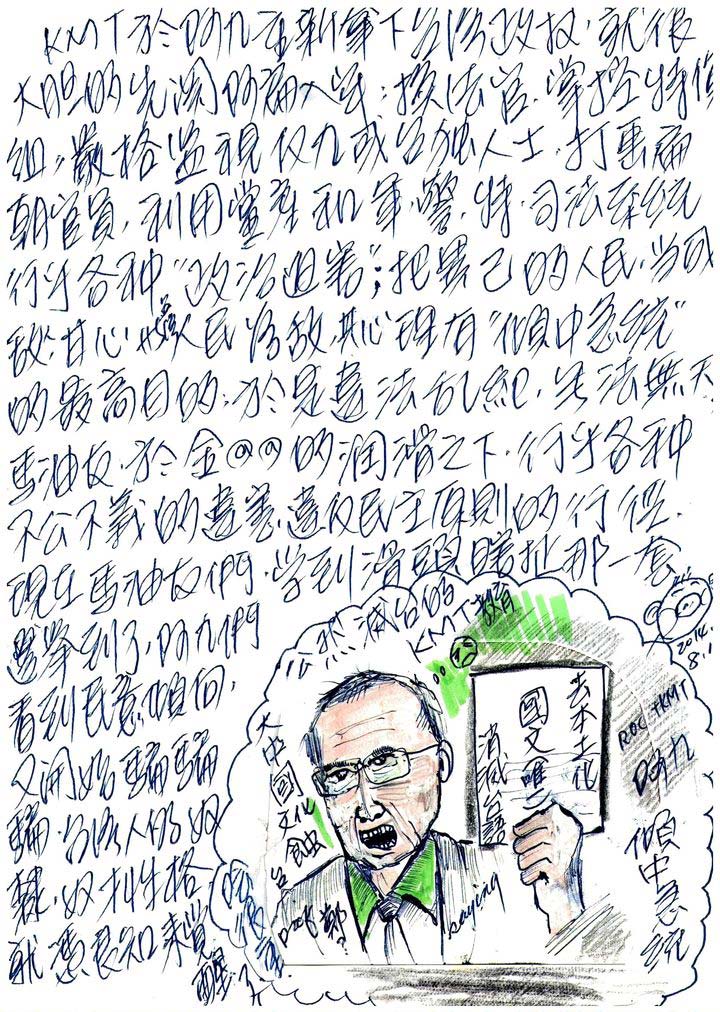 KMT於阿九重新拿下台灣政权,就很
大胆的先關阿扁入牢;換法官.掌控特偵
組,嚴格監視反九或台独人士.打壓扁
朝官員,利用黨產和軍.警.特.司法系統
行乎各种"政治迫害";把異己的人民.当成
敌;甘心與人民為敌,其心理有"傾中急統"
的最高目的.於是違法乱紀.失法無天
馬油友.於金@@的潤滑之下.行乎各种
不公不義的違憲.違反民主原則的行徑.
現在馬油友們.学到滑頭瞎扯那一套
選举到了,阿九們
看到民意傾向,
又開始騙騙
騙.台湾人仍奴
隸.奴才性格
就憑良知來覺
醒了
滅台的
KMT教育
2014.
8.1
去本土化
國文
消滅台語
大中國文化
ROC+KMT
阿九
傾中急統
saying